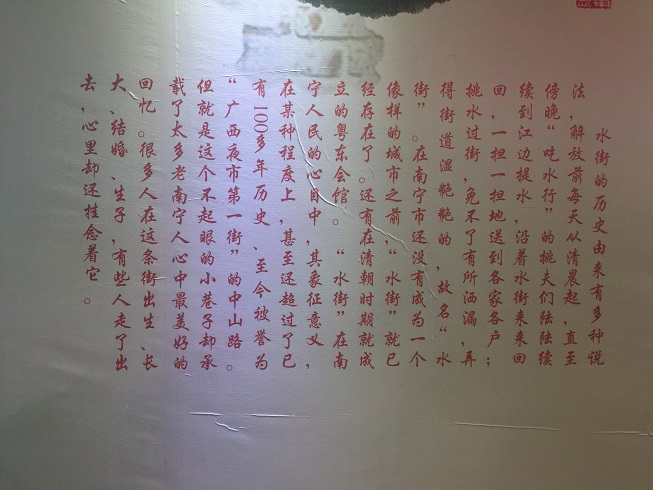 水街的历史由来有多种说
法，解放前每天从清晨起，直至
傍晚“吃水行”的挑夫们陆陆续
续到江边提水，沿着水街来来回
回，一担一担地送到各家各户；
挑水过街，免不了有所洒漏，弄
得街道湿艳艳的，故名“水
街”。在南宁市还没有成为一个
像样的城市之前，“水街”就已
经存在了。还有在清朝时期就成
立的粤东会馆。“水街”在南
宁人民的心目中，其象征意义，
在某种程度上，甚至还超过了已
有100多年历史、至今被誉为
“广西夜市第一街”的中山路。
但就是这个不起眼的小巷子却承
载了太多老南宁人心中最美好的
回忆。很多人在这条街出生、长
大、结婚、生子，有些人走了出
去，心里却还挂念着它。